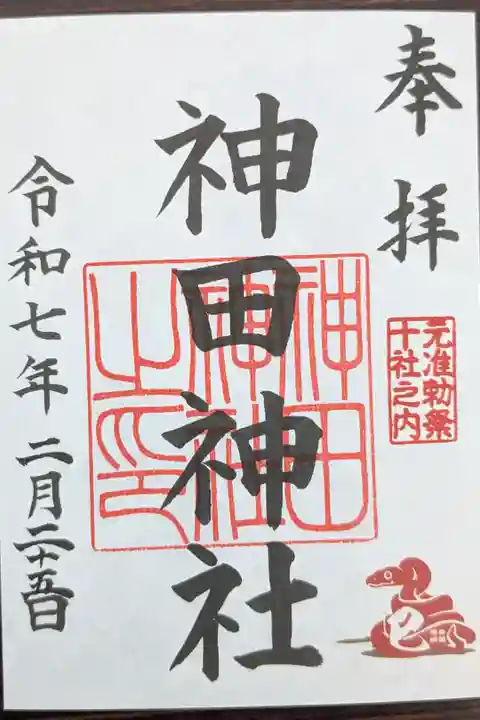 奉拝
元准勅祭
十社之内
神田神社
神田
神社
之印
令和七年二月二十五日
巳